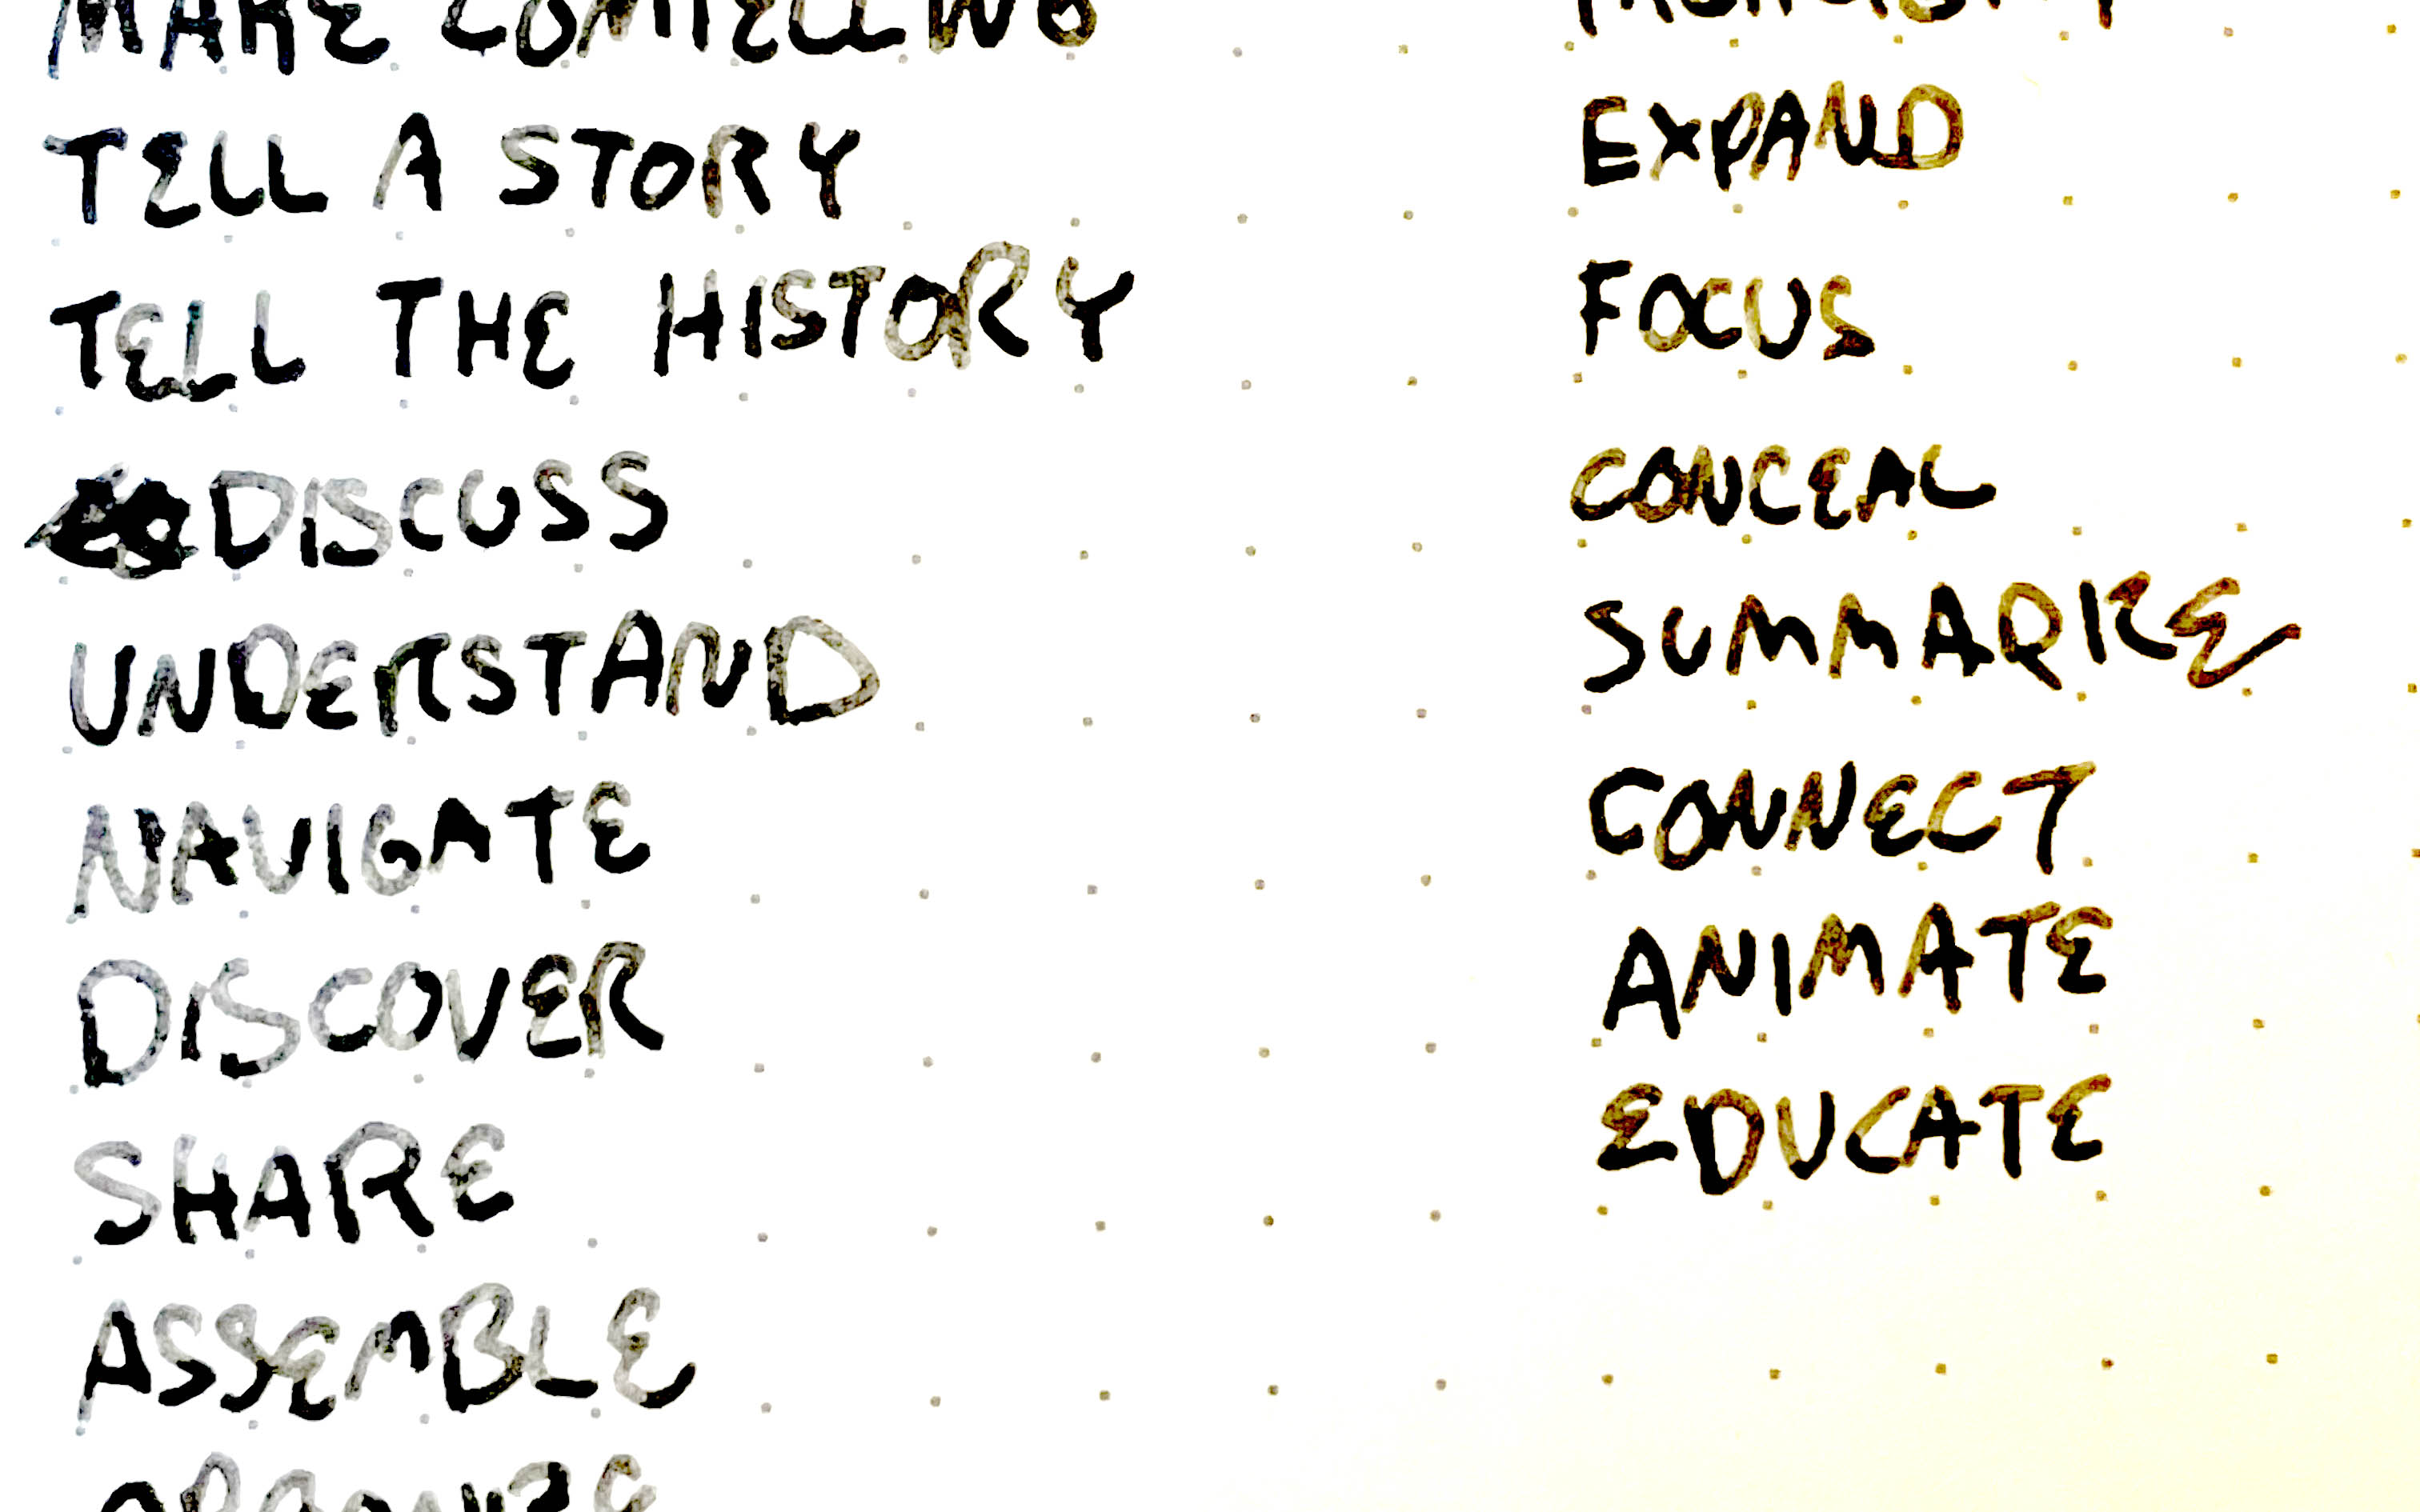 MAKE COMPELLING
TELL A STORY
TELL THE HISTORY
DISCUSS
UNDERSTAND
NAVIGATE
DISCOVER
SHARE
ASSEMBLE
ORGANIZE
EXPAND
FOCUS
CONCEAL
SUMMARIZE
CONNECT
ANIMATE
EDUCATE